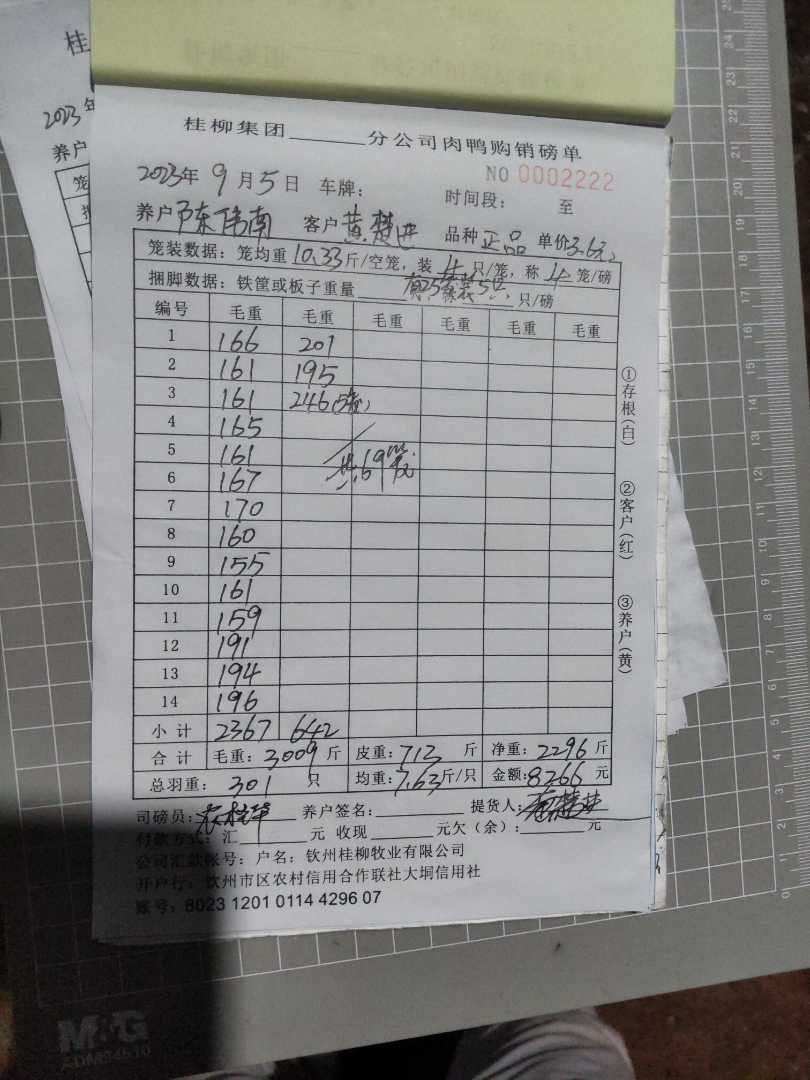 桂
2023年
养户
笼
捆
桂柳集团______分公司肉鸭购销磅单
NO 0002222
2023年 9月5日 车牌: 时间段: 至
养户 陈伟南 客户 黄楚进 品种 正品 单价3.6元
笼装数据: 笼均重 10.33 斤/空笼, 装 4 只/笼, 称 4 笼/磅
捆脚数据: 铁筐或板子重量____ 只/磅
编号 毛重 毛重 毛重 毛重 毛重 毛重
1 166 201
2 161 195
3 161 246(5笼)
4 165
5 161 共69笼
6 167
7 170
8 160
9 155
10 161
11 159
12 191
13 194
14 196
小计 2367 642
合计 毛重: 3009 斤 皮重: 713 斤 净重: 2296 斤
总羽重: 301 只 均重: 7.63斤/只 金额: 8266 元
司磅员: 养户签名: 提货人: 黄楚进
付款方式: 汇______元 收现______元欠(余):______元
公司汇款帐号: 户名: 钦州桂柳牧业有限公司
开户行: 钦州市区农村信用合作联社大垌信用社
账号: 8023 1201 0114 4296 07
①存根(白)
②客户(红)
③养户(黄)
M&G